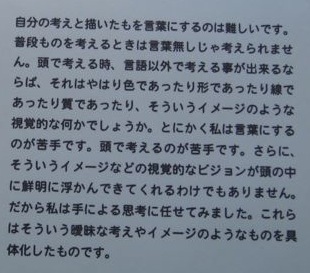 自分の考えと描いたもを言葉にするのは難しいです。
普段ものを考えるときは言葉無しじゃ考えられませ
ん。頭で考える時、言語以外で考える事が出来るな
らば、それはやはり色であったり形であったり線で
あったり質であったり、そういうイメージのような
視覚的な何かでしょうか。とにかく私は言葉にする
のが苦手です。頭で考えるのが苦手です。さらに、
そういうイメージなどの視覚的なビジョンが頭の中
に鮮明に浮かんできてくれるわけでもありません。
だから私は手による思考に任せてみました。これら
はそういう曖昧な考えやイメージのようなものを具
体化したものです。